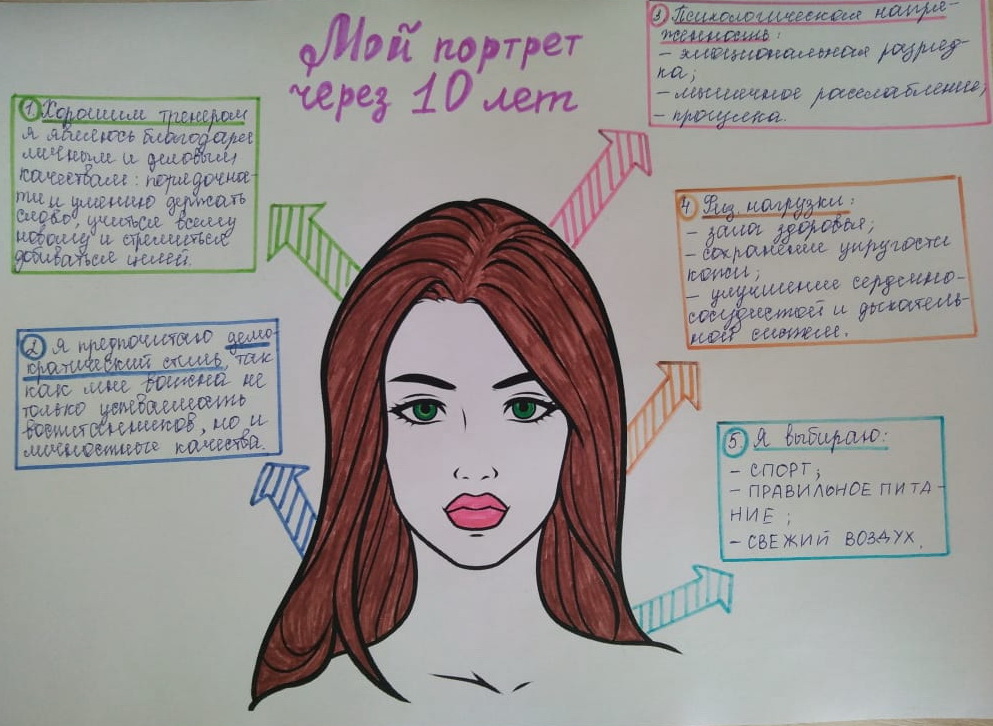 Мой портрет
через 10 лет
1 Хорошим тренером
я являюсь благодаря
личным и деловым
качествам: порядочнос-
ти и умению держать
слово, учиться всему
новому и стремиться
добиваться целей.
2 Я предпочитаю демо-
кратический стиль, так
как мне важна не
только успеваемость
воспитанников, но и
личностные качества.
3 Психологическая напря-
женность:
- эмоциональная разряд-
ка;
- мышечное расслабление;
- прогулка.
4 Физ. нагрузки:
- залог здоровья;
- сохранение упругости
кожи;
- улучшение сердечно-
сосудистой и дыхатель-
ной систем.
5. Я выбираю:
- СПОРТ;
- ПРАВИЛЬНОЕ ПИТА-
НИЕ;
- СВЕЖИЙ ВОЗДУХ.